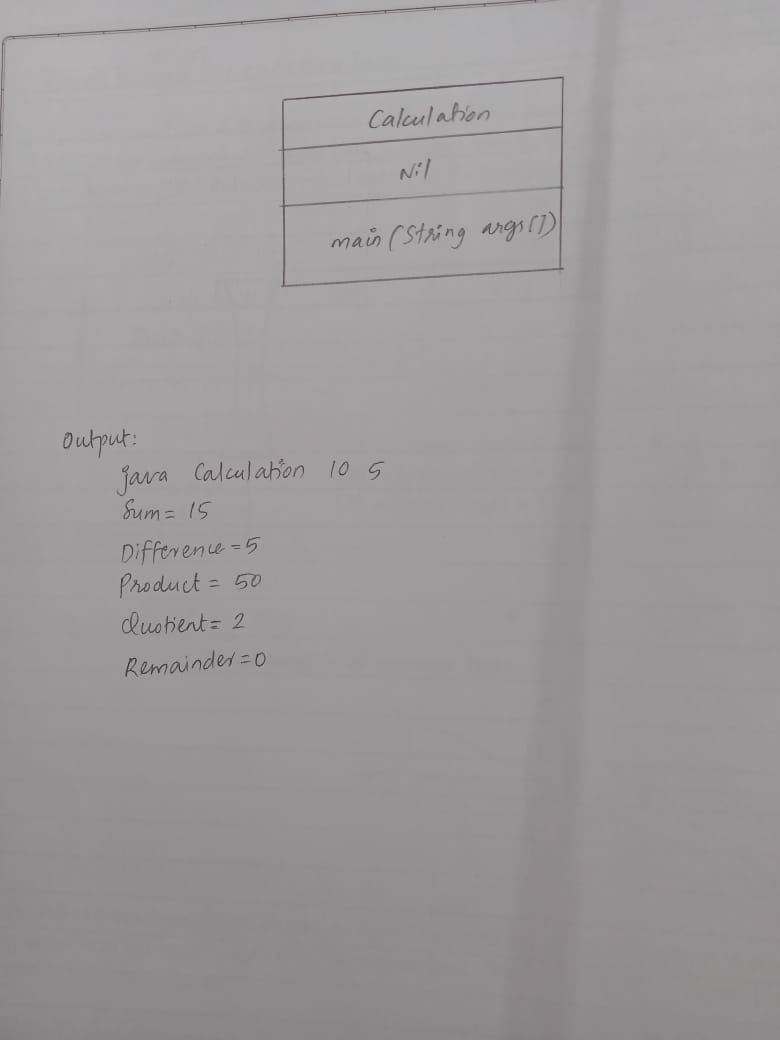 Calculation
Nil
main (String args[])
Output:
java Calculation 10 5
Sum= 15
Difference=5
Product= 50
Quotient= 2
Remainder=0